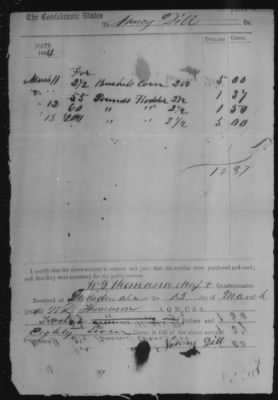 The Confederate States
To Nancy Dill Dr.
DATE Dollars Cents.
1864 For
March 11 2 1/2 Bushels Corn 200 5 00
55 Pounds Fodder 2 1/2 1 37
" 12 60 " " 2 1/2 1 50
" 15 200 " " 2 1/2 5 00
12 87
I certify that the above account is correct and just; that the articles were purchased and used;
and that they were necessary for the public service.
Maj & Quartermaster
Received at the 15 day of March
186 A. Q. M., C. S. A.
Dollars and
Eighty Seven Cents, in full of the above account
Nancy Dill